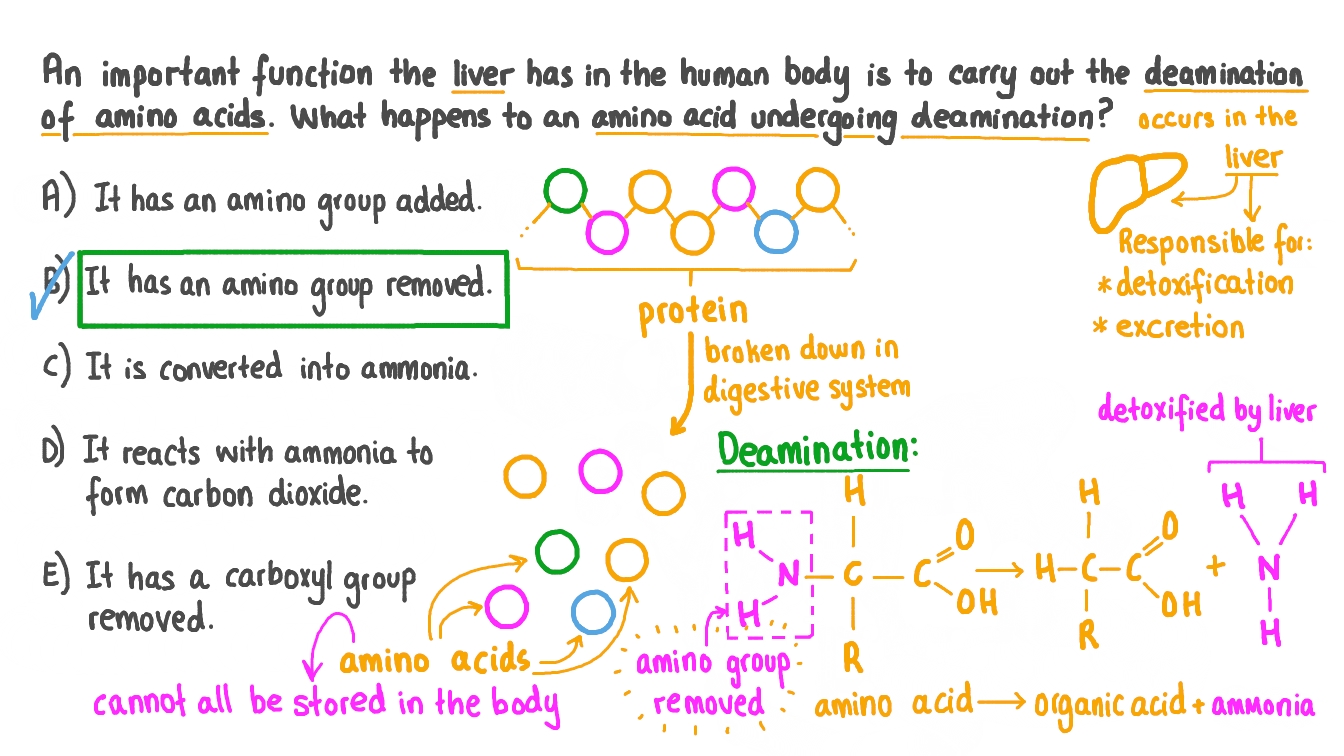 An important function the liver has in the human body is to carry out the deamination
of amino acids. What happens to an amino acid undergoing deamination?
occurs in the
liver
Responsible for:
* detoxification
* excretion
A) It has an amino group added.
B) It has an amino group removed.
C) It is converted into ammonia.
D) It reacts with ammonia to
form carbon dioxide.
E) It has a carboxyl group
removed.
protein
broken down in
digestive system
amino acids
cannot all be stored in the body
Deamination:
detoxified by liver
H H H H
H O O
N C C H C C + N
H OH OH
R R H
amino group
removed
amino acid → organic acid + ammonia